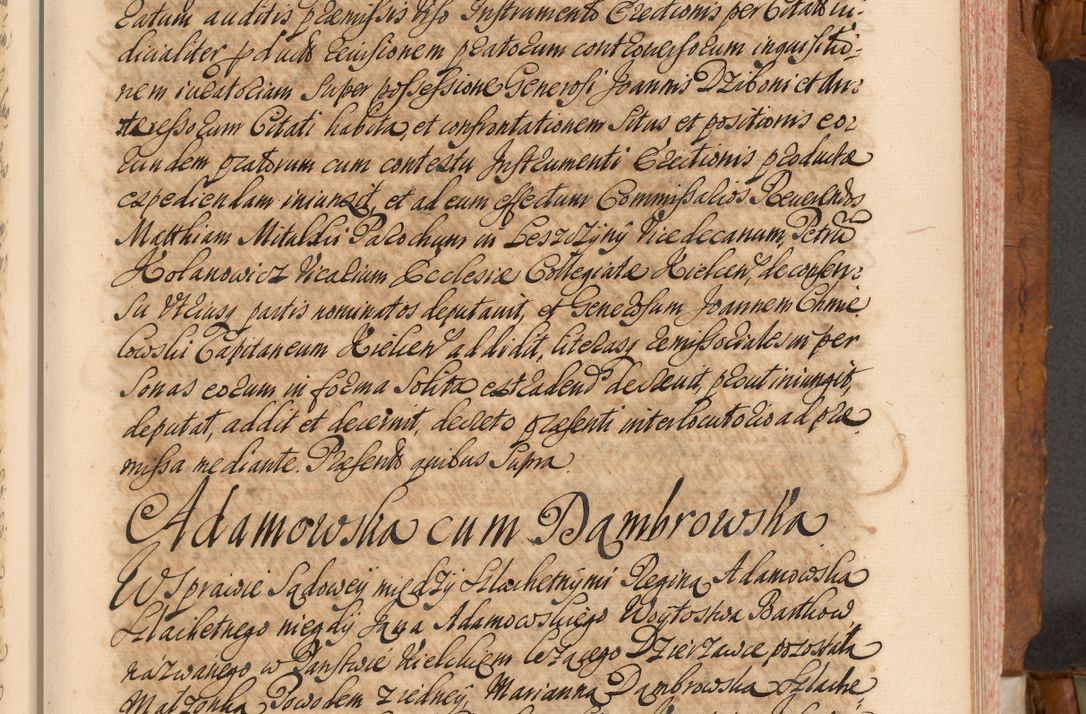 eatum auditis præmissis viso Instrumento Erectionis per Citatum iu-
dicialiter producto revisionem pratorum controversorum inquisitio-
nem iuratoriam super possessione Generosi Joannis Dziboni et An-
tecessorum Citati habita, et confrontationem situs et positionis eo-
rundem pratorum cum contextu Instrumenti Erectionis productæ
expediendam iniunxit, et ad eum effectum Commissarios Reverendos
Matthiam Mitalski Parochum in Leszczyny Vicedecanum, Petrum
Kolanowicz Vicarium Ecclesiæ Collegiatæ Kielcen, de consen-
su utriusq partis nominatos deputavit, et Generosum Joannem Chmie
lowski Capitaneum Kielcen addidit, literasq remissoriales in per
sonas eorum in forma solita extradend decrevit, prout iniungit,
deputat, addit et decernit, decreto præsenti interlocutorio ad præ
missa mediante. Præsentib quibus supra
Adamowska cum Dambrowska
W Sprawie Sądowey między Szlachetnymi Reginą Adamowską
Szlachetnego niegdy Adamowskiego Woytostwa Barthow,
názwanego w Panstwie Kielckiem leżącego Dzierżawce pozostałą
Małżonką Powodem z iedney, Marianną Dambrowską Szlache